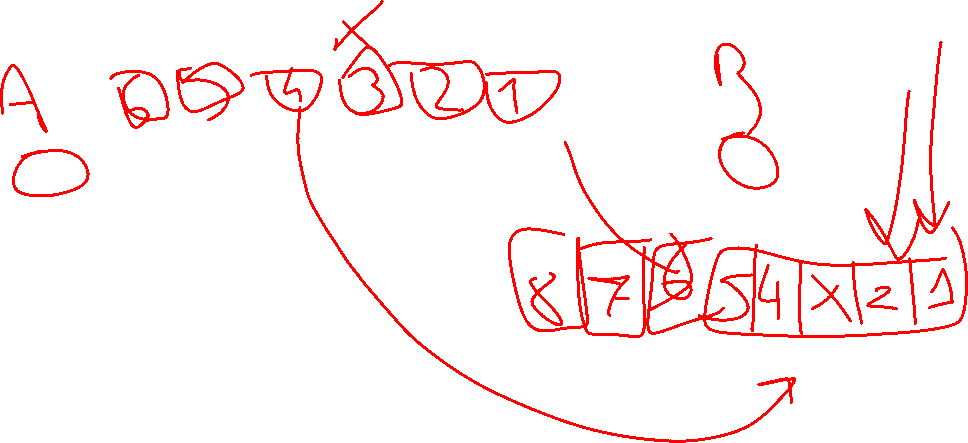 A 6 5 4 3 2 1 B
8 7 6 5 4 X 2 1